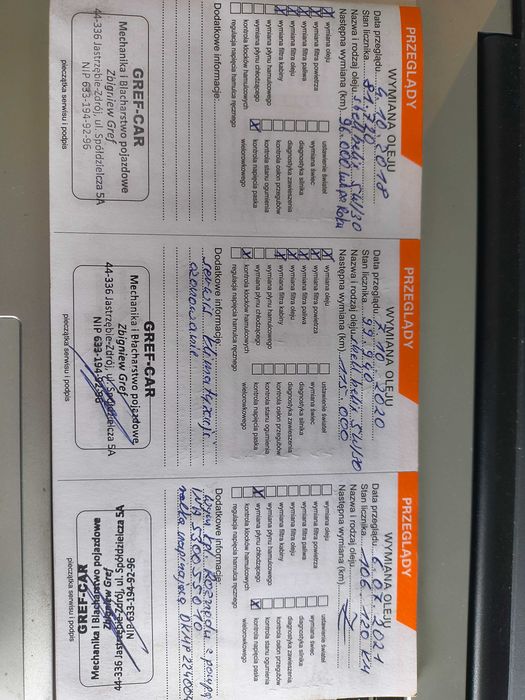 PRZEGLĄDY
WYMIANA OLEJU
Data przeglądu 4.10.2018
Stan licznika 81.770
Nazwa i rodzaj oleju shell helix 5W/30
Następna wymiana (km) 96 000 lub po Roku
X wymiana oleju
X wymiana filtra powietrza
X wymiana filtra paliwa
X wymiana filtra oleju
X wymiana filtra kabiny
wymiana płynu hamulcowego
wymiana płynu chłodzącego
kontrola klocków hamulcowych
regulacja napięcia hamulca ręcznego
ustawienie świateł
wymiana świec
diagnostyka silnika
diagnostyka zawieszenia
kontrola osłon przegubów
kontrola stanu ogumienia
X kontrola napięcia paska
wielorowkowego
Dodatkowe informacje:
GREF-CAR
Mechanika i Blacharstwo pojazdowe
Zbigniew Gref
44-336 Jastrzębie-Zdrój, ul. Spółdzielcza 5A
NIP 633-194-92-96
pieczątka serwisu i podpis
PRZEGLĄDY
WYMIANA OLEJU
Data przeglądu 2020
Stan licznika 99.940
Nazwa i rodzaj oleju shell helix 5W/30
Następna wymiana (km) 115 000
X wymiana oleju
X wymiana filtra powietrza
X wymiana filtra paliwa
X wymiana filtra oleju
X wymiana filtra kabiny
wymiana płynu hamulcowego
wymiana płynu chłodzącego
X kontrola klocków hamulcowych
regulacja napięcia hamulca ręcznego
ustawienie świateł
wymiana świec
diagnostyka silnika
diagnostyka zawieszenia
kontrola osłon przegubów
kontrola stanu ogumienia
kontrola napięcia paska
wielorowkowego
Dodatkowe informacje:
serwis klimatyzacji
ozonowanie
GREF-CAR
Mechanika i Blacharstwo pojazdowe
Zbigniew Gref
44-336 Jastrzębie-Zdrój, ul. Spółdzielcza 5A
NIP 633-194-92-96
pieczątka serwisu i podpis
PRZEGLĄDY
WYMIANA OLEJU
Data przeglądu 2021
Stan licznika 106 120 km
Nazwa i rodzaj oleju
Następna wymiana (km)
wymiana oleju
wymiana filtra powietrza
wymiana filtra paliwa
wymiana filtra oleju
wymiana filtra kabiny
wymiana płynu hamulcowego
X wymiana płynu chłodzącego
kontrola klocków hamulcowych
regulacja napięcia hamulca ręcznego
ustawienie świateł
wymiana świec
diagnostyka silnika
diagnostyka zawieszenia
kontrola osłon przegubów
kontrola stanu ogumienia
X kontrola napięcia paska
wielorowkowego
Dodatkowe informacje:
Wym kpl. Rozrządu z pompą
INA 5300550
rolka
GREF-CAR
Mechanika i Blacharstwo pojazdowe
Zbigniew Gref
44-336 Jastrzębie-Zdrój, ul. Spółdzielcza 5A
NIP 633-194-92-96
pieczątka serwisu i podpis